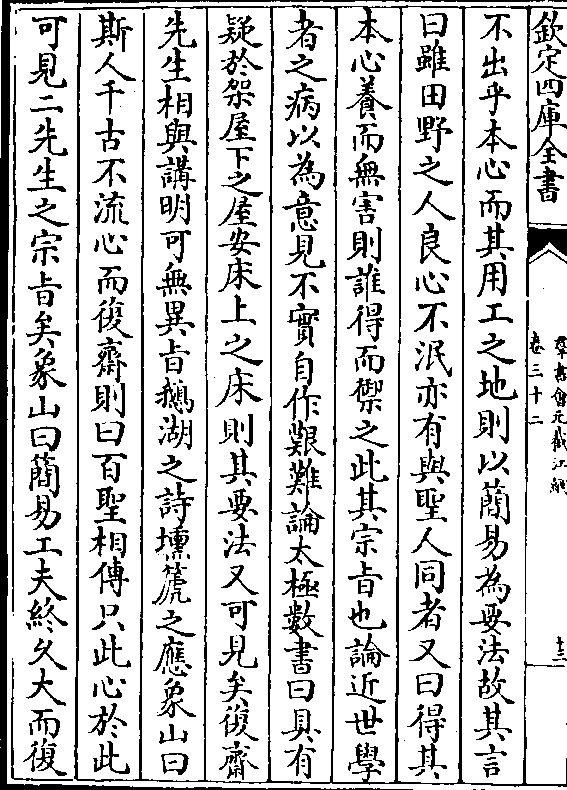 欽定四庫全書
羣書會元截江網
卷三十二
十三
不出乎本心而其用工之地則以簡易為要法故其言
曰雖田野之人良心不泯亦有與聖人同者又曰得其
本心養而無害則誰得而禦之此其宗㫖也論近世學
者之病以為意見不實自作艱難論太極數書曰具有
疑於架屋下之屋安床上之床則其要法又可見矣復齋
先生相與講明可無異㫖鵝湖之詩壎箎之應象山曰
斯人千古不流心而復齋則曰百聖相傳只此心於此
可見二先生之宗㫖矣象山曰簡易工夫終久大而復